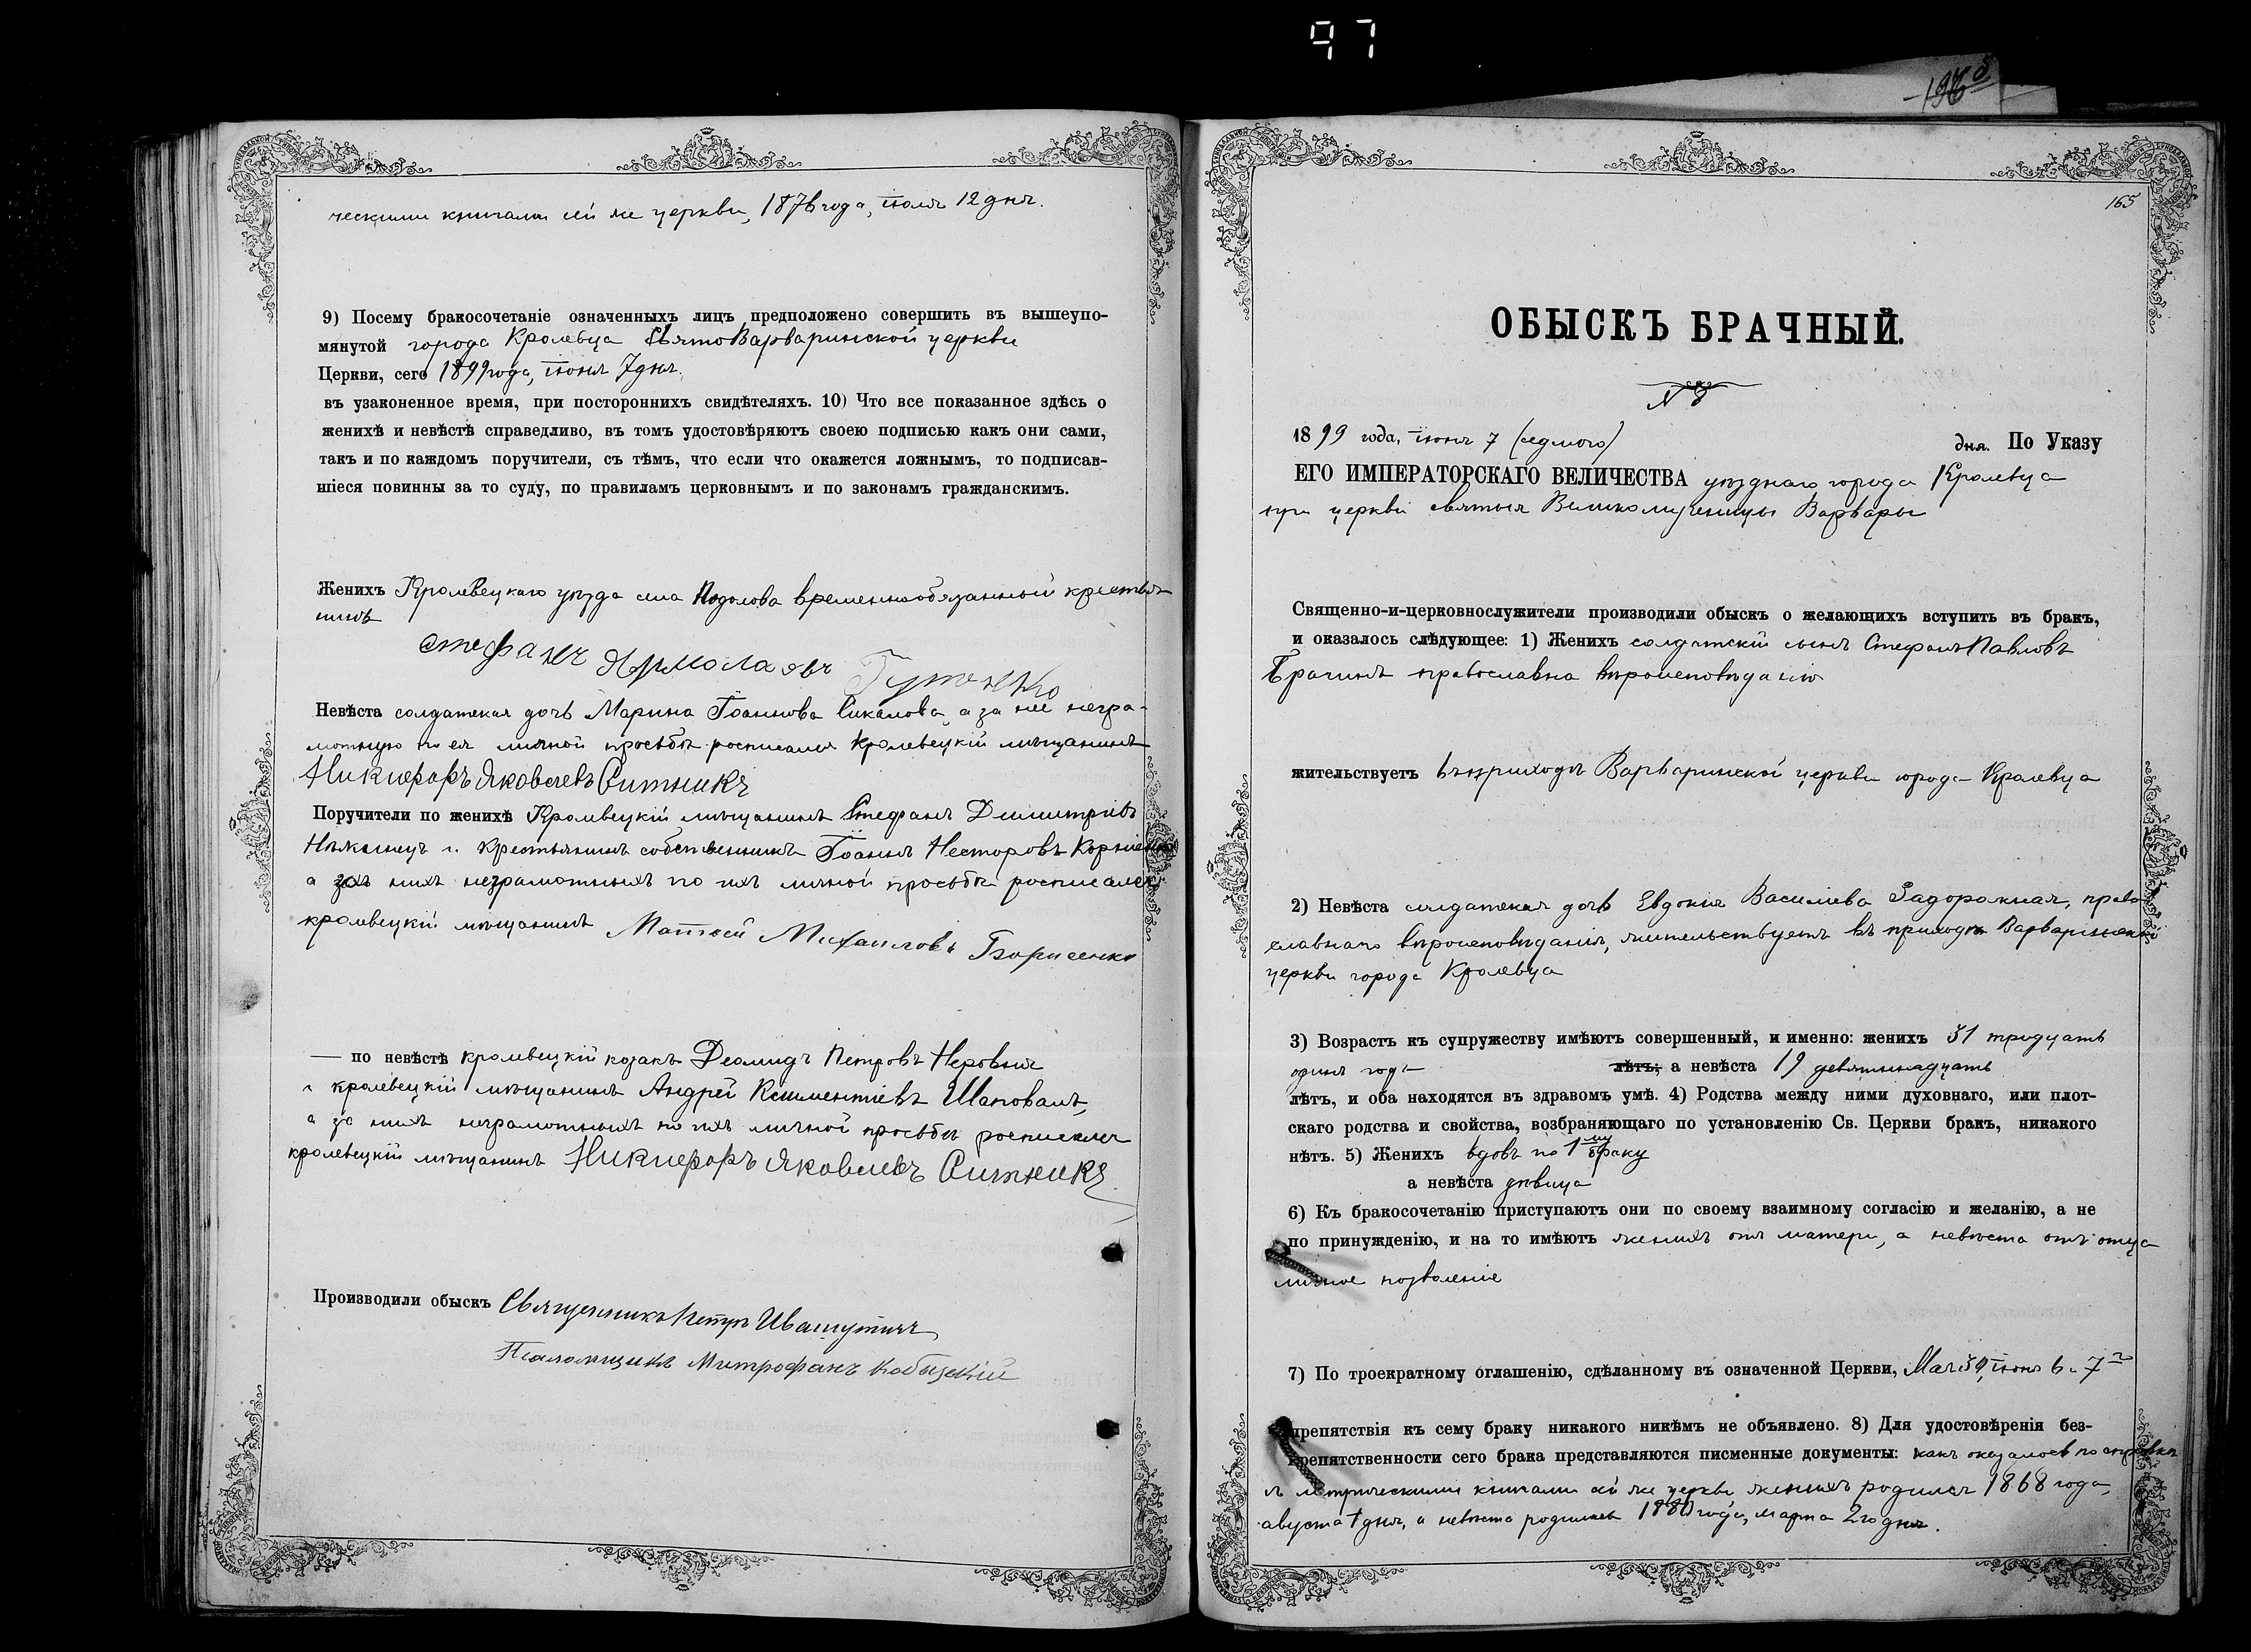 97
165
ческими книгами сей же церкви, 1876 года, июля 12 дня.
9) Посему бракосочетаніе означенныхъ лицъ предположено совершить въ вышеупо-
мянутой города Кролевца СвятоВарваринской церкви
Церкви, сего 1899 года, іюня 7 дня.
въ узаконенное время, при постороннихъ свидѣтеляхъ. 10) Что все показанное здѣсь о
женихѣ и невѣстѣ справедливо, въ томъ удостовѣряютъ своею подписью какъ они сами,
такъ и по каждомъ поручители, съ тѣмъ, что если что окажется ложнымъ, то подписав-
шіеся повинны за то суду, по правиламъ церковнымъ и по законамъ гражданскимъ.
Женихъ Кролевецкаго уѣзда села Подолова временнообязанный крестья
нинъ
Стефанъ Ярмолаявъ
Невѣста солдатская дочь Марина Іоаннова Сикалова, а за нее негра-
мотную по ея личной просьбѣ росписался Кролевецкій мѣщанинъ
Никифоръ Яковлевъ Ситникъ
Поручители по женихѣ Кролевецкій мѣщанинъ Стефанъ Димитріевъ
Нѣжинецъ и крестьянинъ собственникъ Іоаннъ Несторовъ Корніенко
а за нихъ неграмотныхъ по ихъ личной просьбѣ росписался
кролевецкій мѣщанинъ Матвей Михаиловъ Борисенко
— по невѣстѣ кролевецкій козакъ Деомидъ Петровъ Неровня
и кролевецкій мѣщанинъ Андрей Климентіевъ Шаповалъ,
а за нихъ неграмотныхъ по ихъ личной просьбѣ росписался
кролевецкій мѣщанинъ Никифоръ Яковлевъ Ситникъ
Производили обыскъ Священникъ Петръ Ивашутичъ
Псаломщикъ Митрофанъ Кобыскій
ОБЫСКЪ БРАЧНЫЙ.
№ 8
1899 года, іюня 7 (седмого) дня. По Указу
ЕГО ИМПЕРАТОРСКАГО ВЕЛИЧЕСТВА уѣзднаго города Кролевца
при церкви святыя Великомученицы Варвары
Священно-и-церковнослужители производили обыскъ о желающихъ вступить въ бракъ,
и оказалось слѣдующее: 1) Женихъ солдатскій сынъ Стефанъ Павловъ
Брагинъ православна вѣроисповѣданія
жительствуетъ въ приходѣ Варваринской церкви города Кролевца
2) Невѣста солдатская дочь Евдокія Василіева Задорожная, право
славнаго вѣроисповѣданія, жительствуетъ въ приходѣ Варваринской
церкви города Кролевца
3) Возрастъ къ супружеству имѣютъ совершенный, и именно: женихъ 31 тридцать
одинъ годъ лѣтъ; а невѣста 19 девятнадцать
лѣтъ, и оба находятся въ здравомъ умѣ. 4) Родства между ними духовнаго, или плот-
скаго родства и свойства, возбраняющаго по установленію Св. Церкви бракъ, никакого
нѣтъ. 5) Женихъ вдовъ по 1му браку
а невѣста дѣвица
6) Къ бракосочетанію приступаютъ они по своему взаимному согласію и желанію, а не
по принужденію, и на то имѣютъ женихъ отъ матери, а невѣста отъ отца
личное позволеніе
7) По троекратному оглашенію, сдѣланному въ означенной Церкви, Мая 30, іюня 6 и 7го
препятствія къ сему браку никакого никѣмъ не объявлено. 8) Для удостовѣренія без-
препятственности сего брака представляются писменные документы: какъ оказалось по справкѣ
съ метрическими книгами сей же церкви женихъ родился 1868 года,
августа 1 дня, а невѣста родилась 1880 года, марта 2го дня.